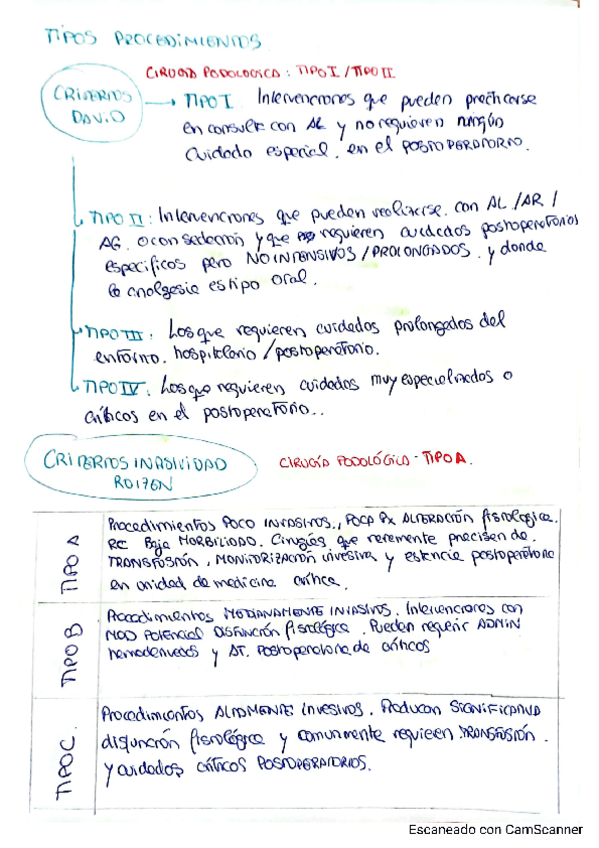 TIPOS PROCEDIMIENTOS
CIRUGÍA PODOLOGICA: TIPO I / TIPO II
CRITERIOS
DAVID
→ TIPO I Intervenciones que pueden practicarse
en consulta con AL y no requieren ningún
cuidado especial. en el POSTOPERATORIO.
TIPO II: Intervenciones que pueden realizarse. con AL / AR /
AG. o con sedación y que requieren cuidados postoperatorios
específicos pero NO INTENSIVOS / PROLONGADOS. y donde
la analgesia es tipo oral.
TIPO III: Los que requieren cuidados prolongados del
entorno. hospitalario / postoperatorio.
TIPO IV: Los que requieren cuidados muy especializados o
críticos en el postoperatorio..
CRITERIOS INVASIVIDAD
ROIZEN
CIRUGÍA PODOLÓGICA - TIPO A.
TIPO A
Procedimientos POCO INVASIVOS., POCA ALTERACIÓN fisiológica.
Baja MORBILIDAD. Cirugías que raramente precisen de.
TRANSFUSIÓN, MONITORIZACIÓN invasiva y estancia postoperatoria
en unidad de medicina crítica.
TIPO B
Procedimientos MEDIANAMENTE INVASIVOS. Intervenciones con
MOD POTENCIAL DISFUNCIÓN fisiológica. Pueden requerir ADMIN
hemoderivados y postoperatorio de críticos
TIPO C.
Procedimientos ALTAMENTE invasivos. Producen SIGNIFICATIVA
disfunción fisiológica y comunmente requieren TRANSFUSIÓN.
y cuidados críticos POSTOPERATORIOS.
Escaneado con CamScanner